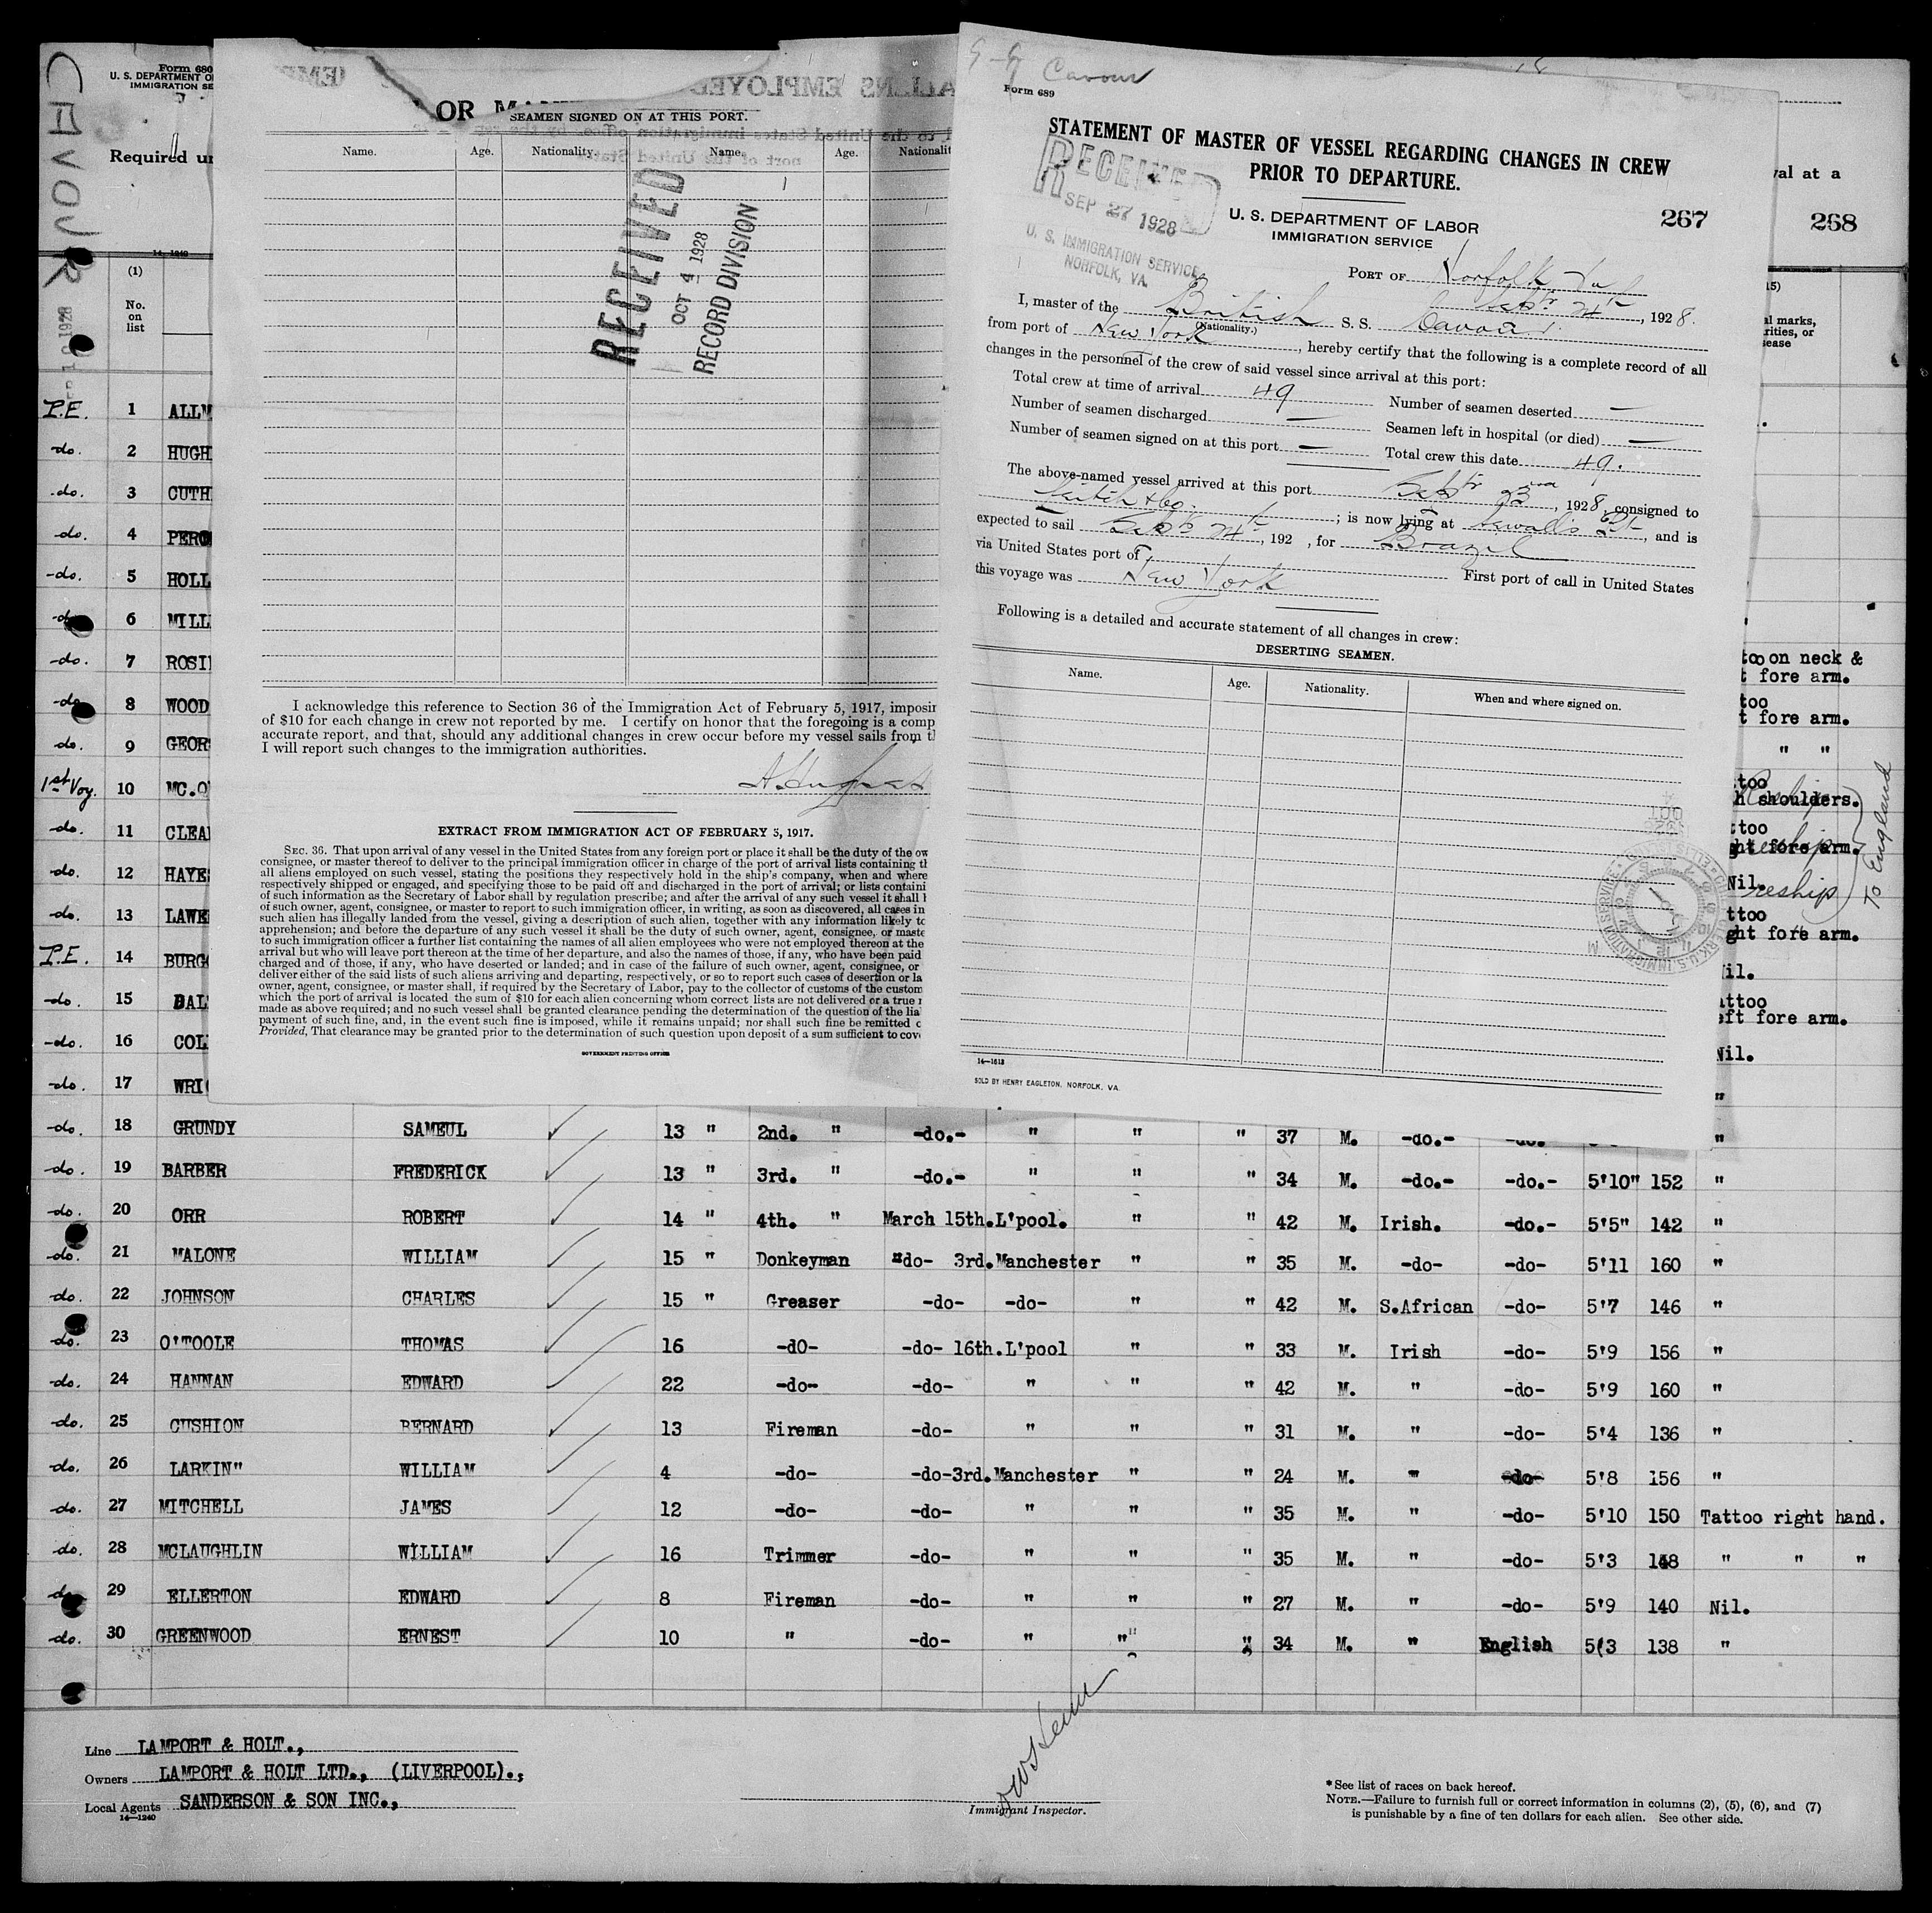 CAVOUR
Form 680
U. S. DEPARTMENT O
IMMIGRATION SE
Required un
14—1240
(1)
No.
on
list
OR MA
SEAMEN SIGNED ON AT THIS PORT.
Name. Age. Nationality. Name. Age. Nationalit
RECEIVED
OCT 4 1928
RECORD DIVISION
I acknowledge this reference to Section 36 of the Immigration Act of February 5, 1917, imposin
of $10 for each change in crew not reported by me. I certify on honor that the foregoing is a comp
accurate report, and that, should any additional changes in crew occur before my vessel sails from t
I will report such changes to the immigration authorities.
EXTRACT FROM IMMIGRATION ACT OF FEBRUARY 5, 1917.
SEC. 36. That upon arrival of any vessel in the United States from any foreign port or place it shall be the duty of the ow
consignee, or master thereof to deliver to the principal immigration officer in charge of the port of arrival lists containing th
all aliens employed on such vessel, stating the positions they respectively hold in the ship's company, when and where
respectively shipped or engaged, and specifying those to be paid off and discharged in the port of arrival; or lists containi
of such information as the Secretary of Labor shall by regulation prescribe; and after the arrival of any such vessel it shall
of such owner, agent, consignee, or master to report to such immigration officer, in writing, as soon as discovered, all cases in
such alien has illegally landed from the vessel, giving a description of such alien, together with any information likely to
apprehension; and before the departure of any such vessel it shall be the duty of such owner, agent, consignee, or maste
to such immigration officer a further list containing the names of all alien employees who were not employed thereon at the
arrival but who will leave port thereon at the time of her departure, and also the names of those, if any, who have been paid
charged and of those, if any, who have deserted or landed; and in case of the failure of such owner, agent, consignee, or
deliver either of the said lists of such aliens arriving and departing, respectively, or so to report such cases of desertion or la
owner, agent, consignee, or master shall, if required by the Secretary of Labor, pay to the collector of customs of the custom
which the port of arrival is located the sum of $10 for each alien concerning whom correct lists are not delivered or a true r
made as above required; and no such vessel shall be granted clearance pending the determination of the question of the lia
payment of such fine, and, in the event such fine is imposed, while it remains unpaid; nor shall such fine be remitted o
Provided, That clearance may be granted prior to the determination of such question upon deposit of a sum sufficient to cove
GOVERNMENT PRINTING OFFICE
Cavour
Form 689
STATEMENT OF MASTER OF VESSEL REGARDING CHANGES IN CREW
PRIOR TO DEPARTURE.
RECEIVED
SEP 27 1928
U. S. IMMIGRATION SERVICE,
NORFOLK, VA.
U. S. DEPARTMENT OF LABOR
IMMIGRATION SERVICE
267
PORT OF Norfolk Va
Septr 24th, 1928.
I, master of the British S. S. Cavour
(Nationality.)
from port of New York, hereby certify that the following is a complete record of all
changes in the personnel of the crew of said vessel since arrival at this port:
Total crew at time of arrival 49 Number of seamen deserted —
Number of seamen discharged — Seamen left in hospital (or died) —
Number of seamen signed on at this port — Total crew this date 49.
The above-named vessel arrived at this port Septr 23rd, 1928, consigned to
& Co. ; is now lying at Sewalls Pt, and is
expected to sail Septr 24th, 192 , for Brazil
via United States port of
First port of call in United States
this voyage was New York
Following is a detailed and accurate statement of all changes in crew:
DESERTING SEAMEN.
Name. Age. Nationality. When and where signed on.
14—1613
SOLD BY HENRY EAGLETON, NORFOLK, VA.
val at a
268
15)
al marks,
rities, or
sease
P.E. 1 ALLW
-do. 2 HUGH
-do. 3 CUTH
-do. 4 PERO
-do. 5 HOLL
-do. 6 MILL
-do. 7 ROSI too on neck &
t fore arm.
-do. 8 WOOD too
t fore arm.
do. 9 GEOR " "
1st Voy. 10 MC.O too
h shoulders.
-do. 11 CLEA ttoo
ght fore arm.
-do. 12 HAYE Nil. reship
To England
-do. 13 LAWE ttoo
ght fore arm.
P.E. 14 BURG il.
-do. 15 DAL attoo
eft fore arm.
-do. 16 COL Nil.
-do. 17 WRI "
-do. 18 GRUNDY SAMEUL 13 " 2nd. " -do.- " " " 37 M. -do.- -do. "
-do. 19 BARBER FREDERICK 13 " 3rd. " -do.- " " " 34 M. -do.- -do.- 5'10" 152 "
do. 20 ORR ROBERT 14 " 4th. " March 15th. L'pool. " " 42 M. Irish. -do.- 5'5" 142 "
do. 21 MALONE WILLIAM 15 " Donkeyman "do- 3rd. Manchester " " 35 M. -do- -do- 5'11 160 "
do. 22 JOHNSON CHARLES 15 " Greaser -do- -do- " " 42 M. S.African -do- 5'7 146 "
do. 23 O'TOOLE THOMAS 16 -dO- -do- 16th. L'pool " " 33 M. Irish -do- 5'9 156 "
-do. 24 HANNAN EDWARD 22 -do- -do- " " " 42 M. " -do- 5'9 160 "
-do. 25 CUSHION BERNARD 13 Fireman -do- " " " 31 M. " -do- 5'4 136 "
do. 26 LARKIN" WILLIAM 4 -do- -do-3rd. Manchester " " 24 M. " -do- 5'8 156 "
-do. 27 MITCHELL JAMES 12 -do- -do- " " " 35 M. " -do- 5'10 150 Tattoo right hand.
do. 28 MCLAUGHLIN WILLIAM 16 Trimmer -do- " " " 35 M. " -do- 5'3 148 " " "
do 29 ELLERTON EDWARD 8 Fireman -do- " " " 27 M. " -do- 5'9 140 Nil.
do. 30 GREENWOOD ERNEST 10 " -do- " " " 34 M. " English 5(3 138 "
Line LAMPORT & HOLT.,
Owners LAMPORT & HOLT LTD., (LIVERPOOL).,
Local Agents SANDERSON & SON INC.,
14—1240
Immigrant Inspector.
*See list of races on back hereof.
NOTE.—Failure to furnish full or correct information in columns (2), (5), (6), and (7)
is punishable by a fine of ten dollars for each alien. See other side.